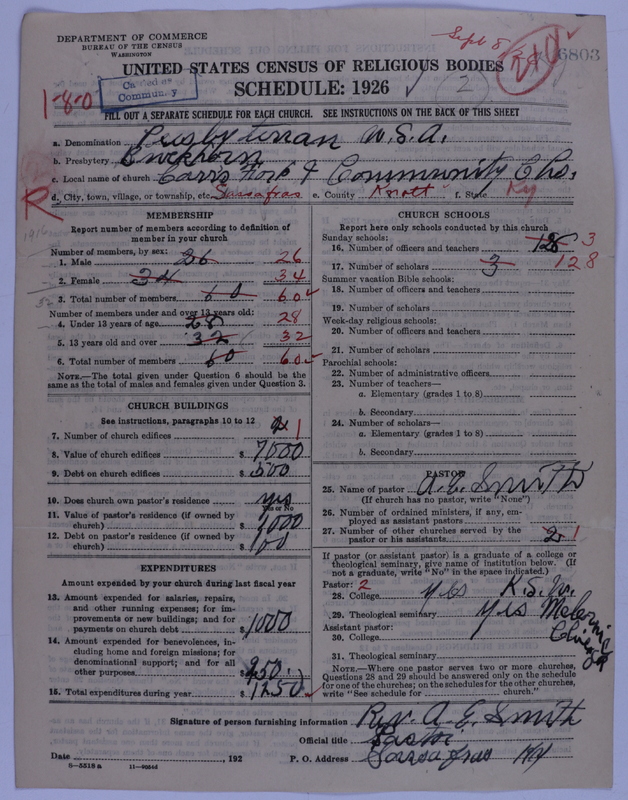 DEPARTMENT OF COMMERCE
BUREAU OF THE CENSUS
WASHINGTON
Sept 8
6803
UNITED STATES CENSUS OF RELIGIOUS BODIES
SCHEDULE: 1926
2
1-8-0
Community
FILL OUT A SEPARATE SCHEDULE FOR EACH CHURCH. SEE INSTRUCTIONS ON THE BACK OF THIS SHEET
a. Denomination Presbyterian U.S.A.
b. Presbytery Buckhorn
c. Local name of church Carrs Fork & Community Chs.
R
d. City, town, village, or township, etc. Sassafras e. County Knott f. State Ky
1916
MEMBERSHIP
Report number of members according to definition of
member in your church
Number of members, by sex:
1. Male 26 26
2. Female 34 34
3. Total number of members 60 60
Number of members under and over 13 years old:
4. Under 13 years of age 28 28
5. 13 years old and over 32 32
6. Total number of members 60 60
NOTE.—The total given under Question 6 should be the
same as the total of males and females given under Question 3.
CHURCH BUILDINGS
See instructions, paragraphs 10 to 12
7. Number of church edifices 2 1
8. Value of church edifices $ 7000
9. Debt on church edifices $ 500
10. Does church own pastor's residence yes
Yes or No
11. Value of pastor's residence (if owned by
church) $ 1000
12. Debt on pastor's residence (if owned by
church) $ 100
EXPENDITURES
Amount expended by your church during last fiscal year
13. Amount expended for salaries, repairs,
and other running expenses; for im-
provements or new buildings; and for
payments on church debt $ 1000
14. Amount expended for benevolences, in-
cluding home and foreign missions; for
denominational support; and for all
other purposes $ 250
15. Total expenditures during year $ 1250
CHURCH SCHOOLS
Report here only schools conducted by this church
Sunday schools:
16. Number of officers and teachers 128 3
17. Number of scholars 3 128
Summer vacation Bible schools:
18. Number of officers and teachers
19. Number of scholars
Week-day religious schools:
20. Number of officers and teachers
21. Number of scholars
Parochial schools:
22. Number of administrative officers
23. Number of teachers—
a. Elementary (grades 1 to 8)
b. Secondary
24. Number of scholars—
a. Elementary (grades 1 to 8)
b. Secondary
PASTOR
25. Name of pastor A. E. Smith
(If church has no pastor, write "None")
26. Number of ordained ministers, if any, em-
ployed as assistant pastors
27. Number of other churches served by the
pastor or his assistants 2 1
If pastor (or assistant pastor) is a graduate of a college or
theological seminary, give name of institution below. (If
not a graduate, write "No" in the space indicated.)
Pastor: 2
28. College yes
29. Theological seminary yes
Assistant pastor:
30. College
31. Theological seminary
NOTE.—Where one pastor serves two or more churches,
Questions 28 and 29 should be answered only on the schedule
for one of the churches; on the schedules for the other churches,
write "See schedule for church."
Signature of person furnishing information Rev. A. E. Smith
Official title Pastor
Date , 192 P. O. Address Sassafras Ky
8—5518 a 11—9064d